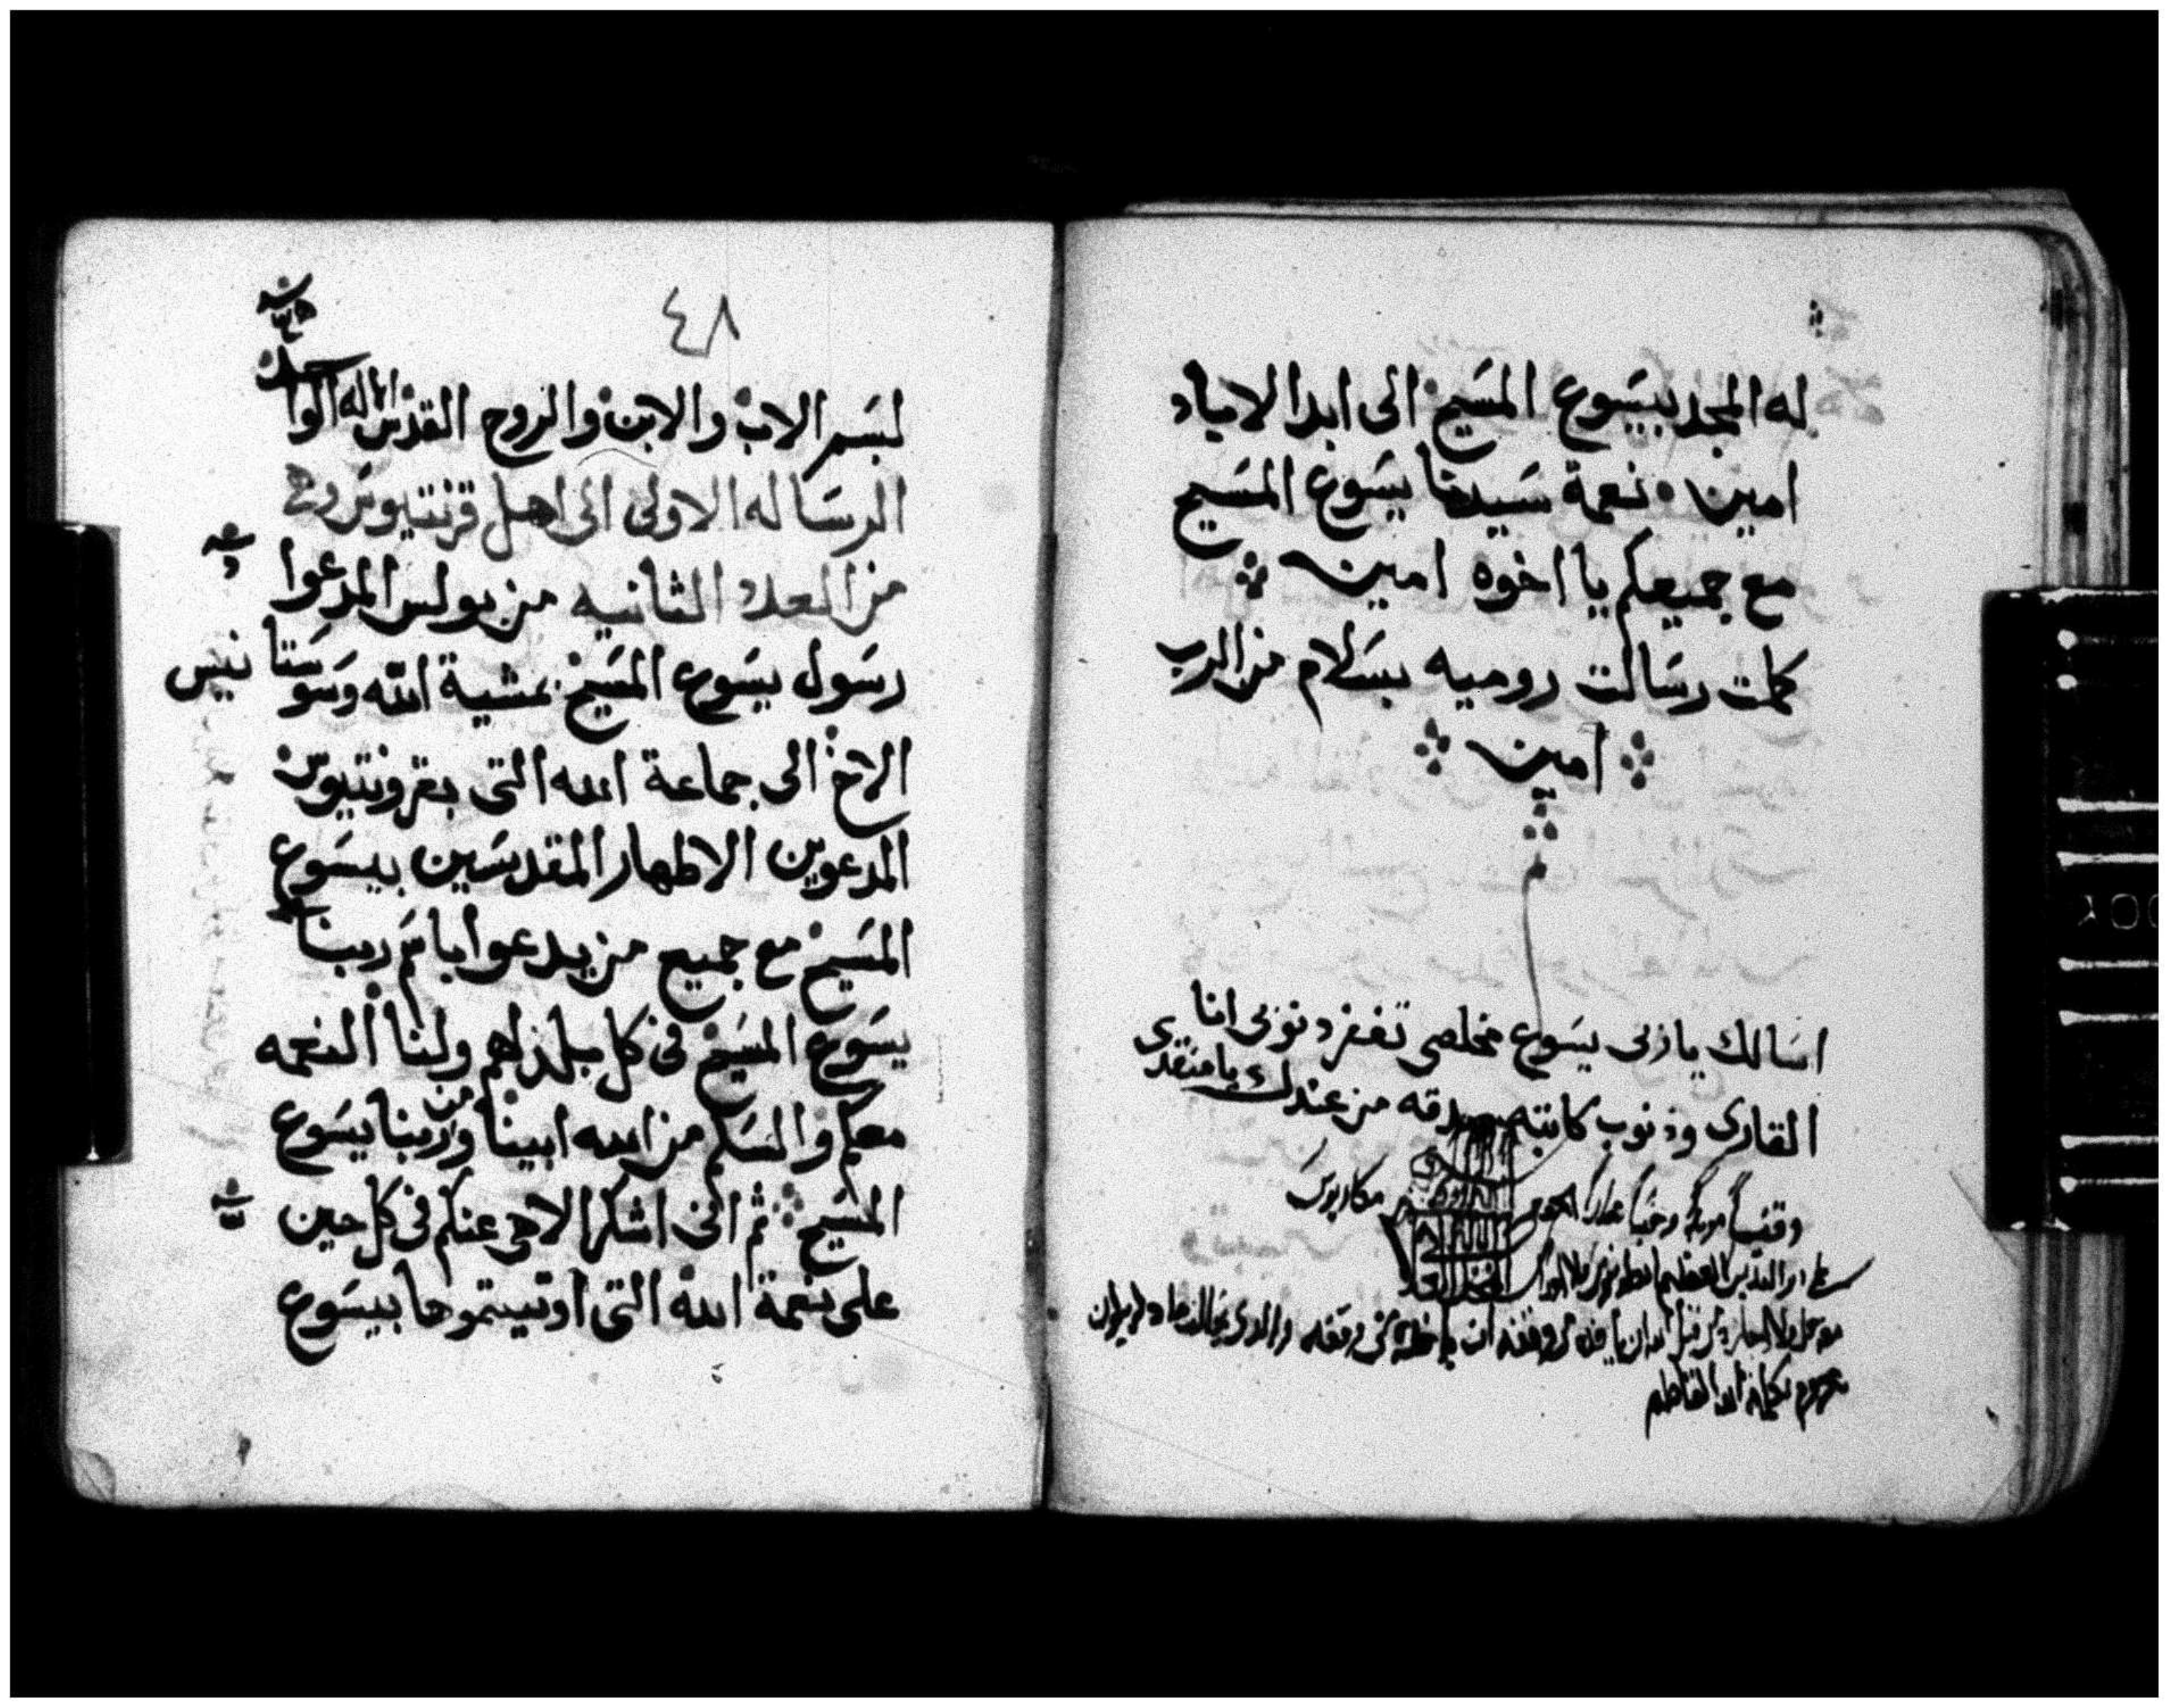 له المجد بيسوع المسيح الى ابد الاباد
امين ٠ نعمة سيدنا يسوع المسيح
مع جميعكم يا اخوه امين
كملت رسالت روميه بسلام من الرب
امين
اسالك ياربى يسوع مخلصى تغفر دنوبى انا
القارى وذنوب كاتبه من عندك يا منقدى
وقفا موبدا وحبسا
مكاريوس
٤٨
بسم الاب والابن والروح القدس الاله الواحد
الرساله الاولى الى اهل قرنتيوس وهى
من العدد الثانيه من بولس المدعوا
رسول يسوع المسيح بمشية الله وسوستانيس
الاخ الى جماعة الله التى بقرونتيوس
المدعوين الاطهار المقدسين بيسوع
المسيح مع جميع من يدعوا باسم ربنا
يسوع المسيح فى كل بلد لهم ولنا النعمه
معكم والسلم من الله ابينا ومن ربنا يسوع
المسيح ثم انى اشكر الاهى عنكم فى كل حين
على نعمة الله التى اوتيتموها بيسوع